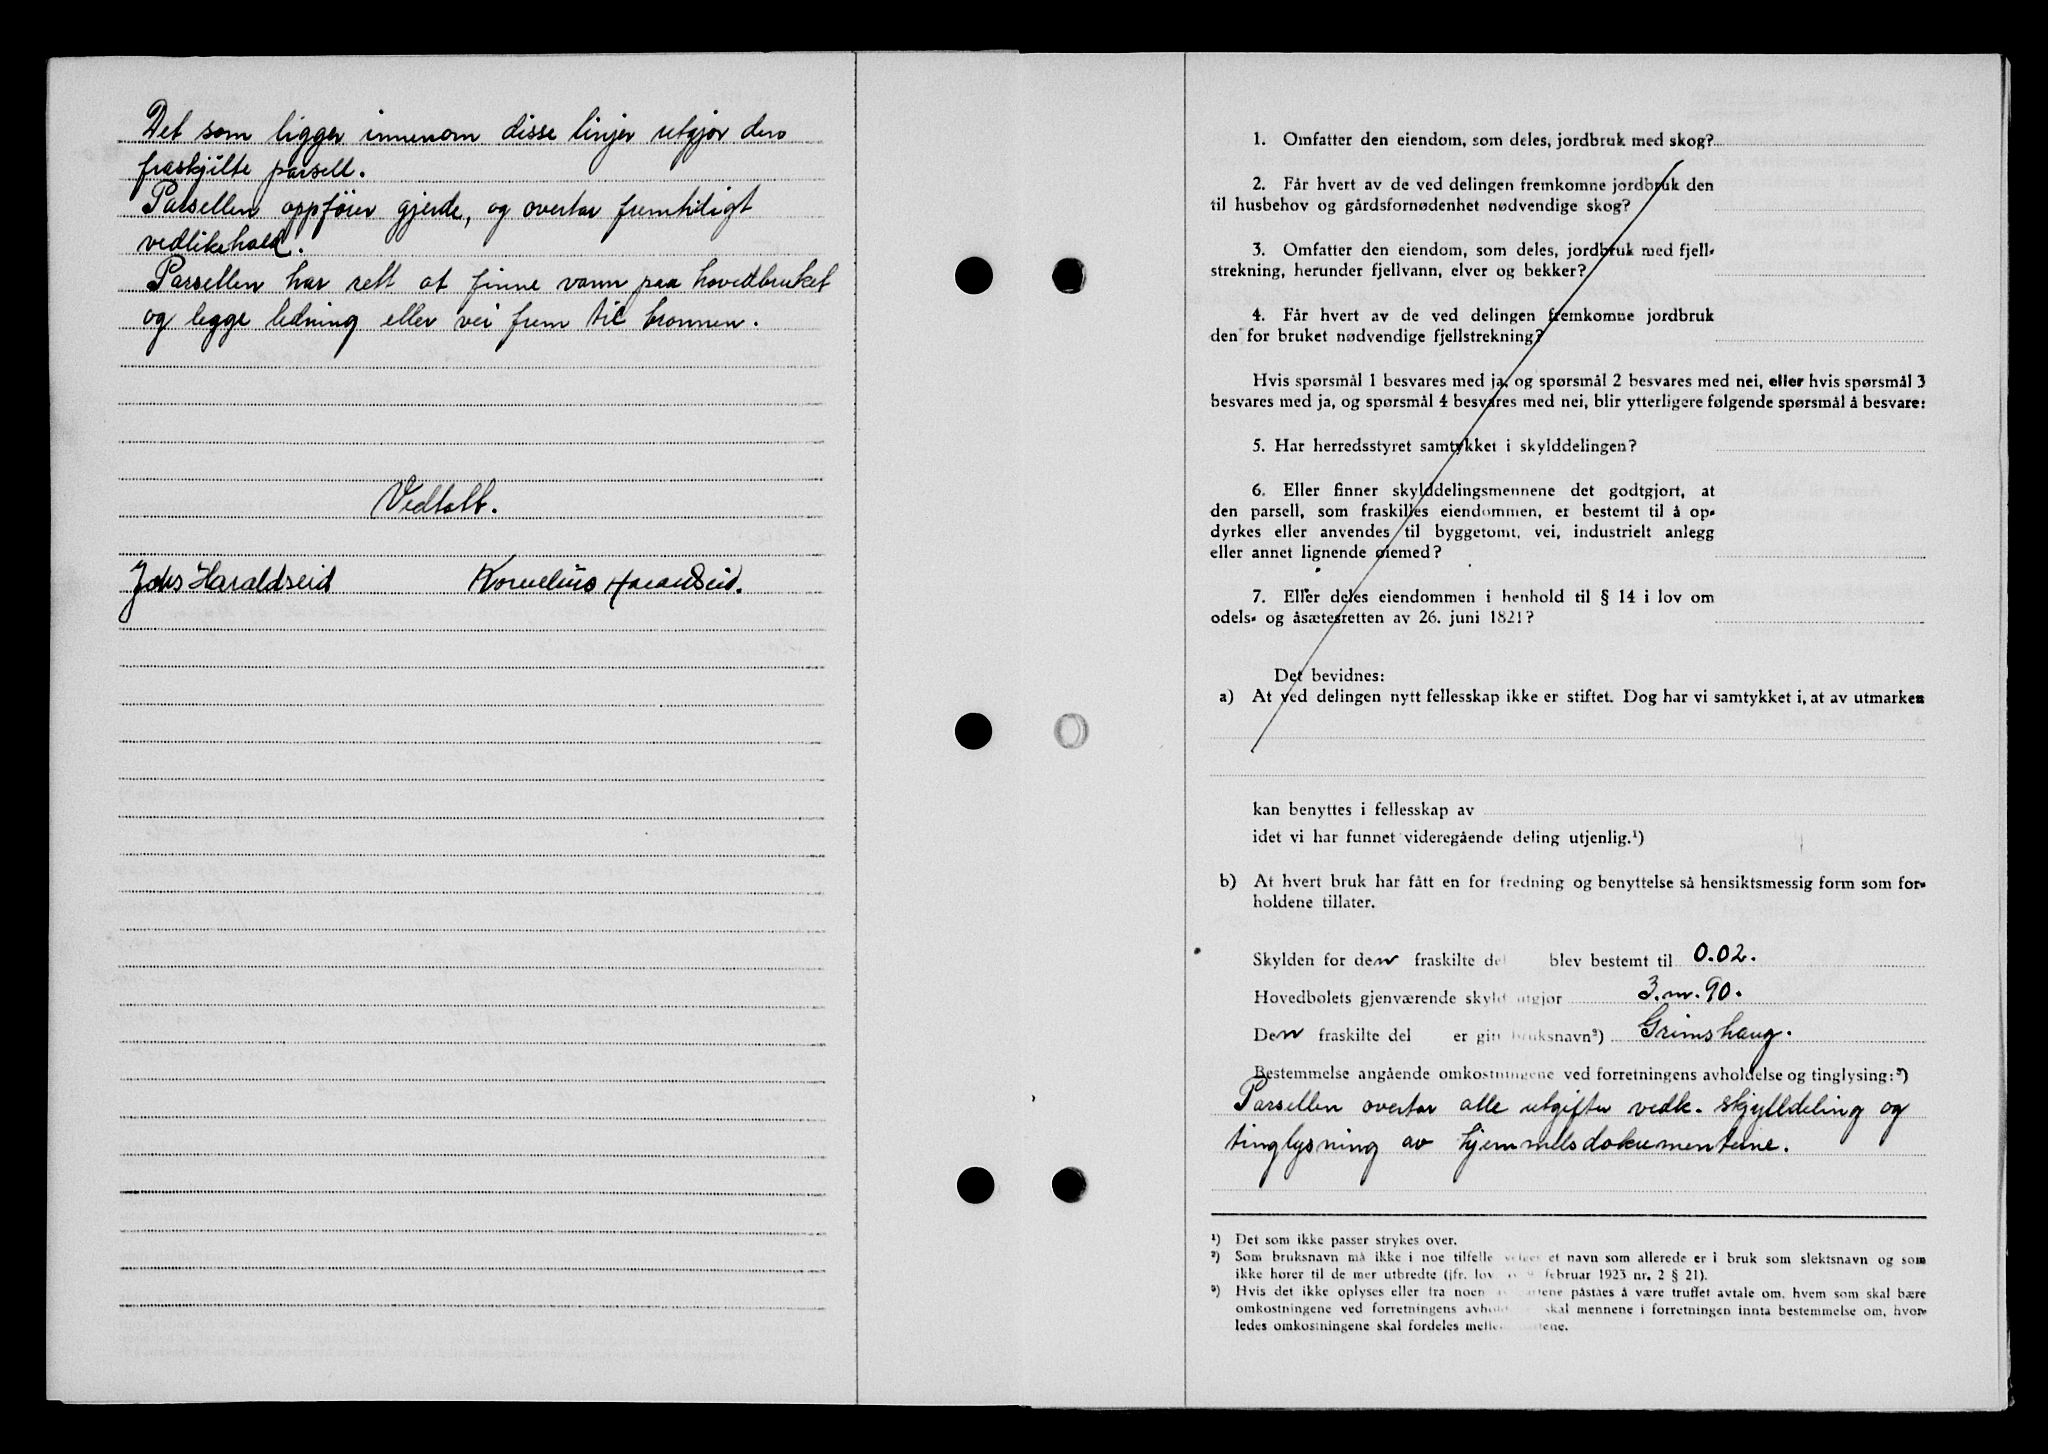 Det som ligger innenom disse linjer utgjør den
fraskjilte parsell.
Parsellen oppfører gjerde, og overtar fremtidigt
vedlikehald.
Parsellen har rett at finne vann paa hovedbruket
og legge ledning eller vei frem til brønnen.
Vedtatt.
Johs Haraldseid Kornelius Haraldseid.
1. Omfatter den eiendom, som deles, jordbruk med skog?
2. Får hvert av de ved delingen fremkomne jordbruk den
til husbehov og gårdsfornødenhet nødvendige skog?
3. Omfatter den eiendom, som deles, jordbruk med fjell-
strekning, herunder fjellvann, elver og bekker?
4. Får hvert av de ved delingen fremkomne jordbruk
den for bruket nødvendige fjellstrekning?
Hvis spørsmål 1 besvares med ja, og spørsmål 2 besvares med nei, eller hvis spørsmål 3
besvares med ja, og spørsmål 4 besvares med nei, blir ytterligere følgende spørsmål å besvare:
5. Har herredsstyret samtykket i skylddelingen?
6. Eller finner skylddelingsmennene det godtgjort, at
den parsell, som fraskilles eiendommen, er bestemt til å op-
dyrkes eller anvendes til byggetomt, vei, industrielt anlegg
eller annet lignende øiemed?
7. Eller deles eiendommen i henhold til § 14 i lov om
odels- og åsætesretten av 26. juni 1821?
Det bevidnes:
a) At ved delingen nytt fellesskap ikke er stiftet. Dog har vi samtykket i, at av utmarken
kan benyttes i fellesskap av
idet vi har funnet videregående deling utjenlig.¹)
b) At hvert bruk har fått en for fredning og benyttelse så hensiktsmessig form som for-
holdene tillater.
Skylden for den fraskilte del blev bestemt til 0.02.
Hovedbølets gjenværende skyld utgjør 3.m.90.
Den fraskilte del er gitt bruksnavn²) Grimshaug.
Bestemmelse angående omkostningene ved forretningens avholdelse og tinglysing:³)
Parsellen overtar alle utgifter vedk. skjylldeling og
tinglysning av hjemmelsdokumentene.
¹) Det som ikke passer strykes over.
²) Som bruksnavn må ikke i noe tilfelle velges et navn som allerede er i bruk som slektsnavn og som
ikke hører til de mer utbredte (jfr. lov av 9. februar 1923 nr. 2 § 21).
³) Hvis det ikke oplyses eller fra noen av partene påståes å være truffet avtale om, hvem som skal bære
omkostningene ved forretningens avholdelse skal mennene i forretningen innta bestemmelse om, hvor-
ledes omkostningene skal fordeles mellem partene.